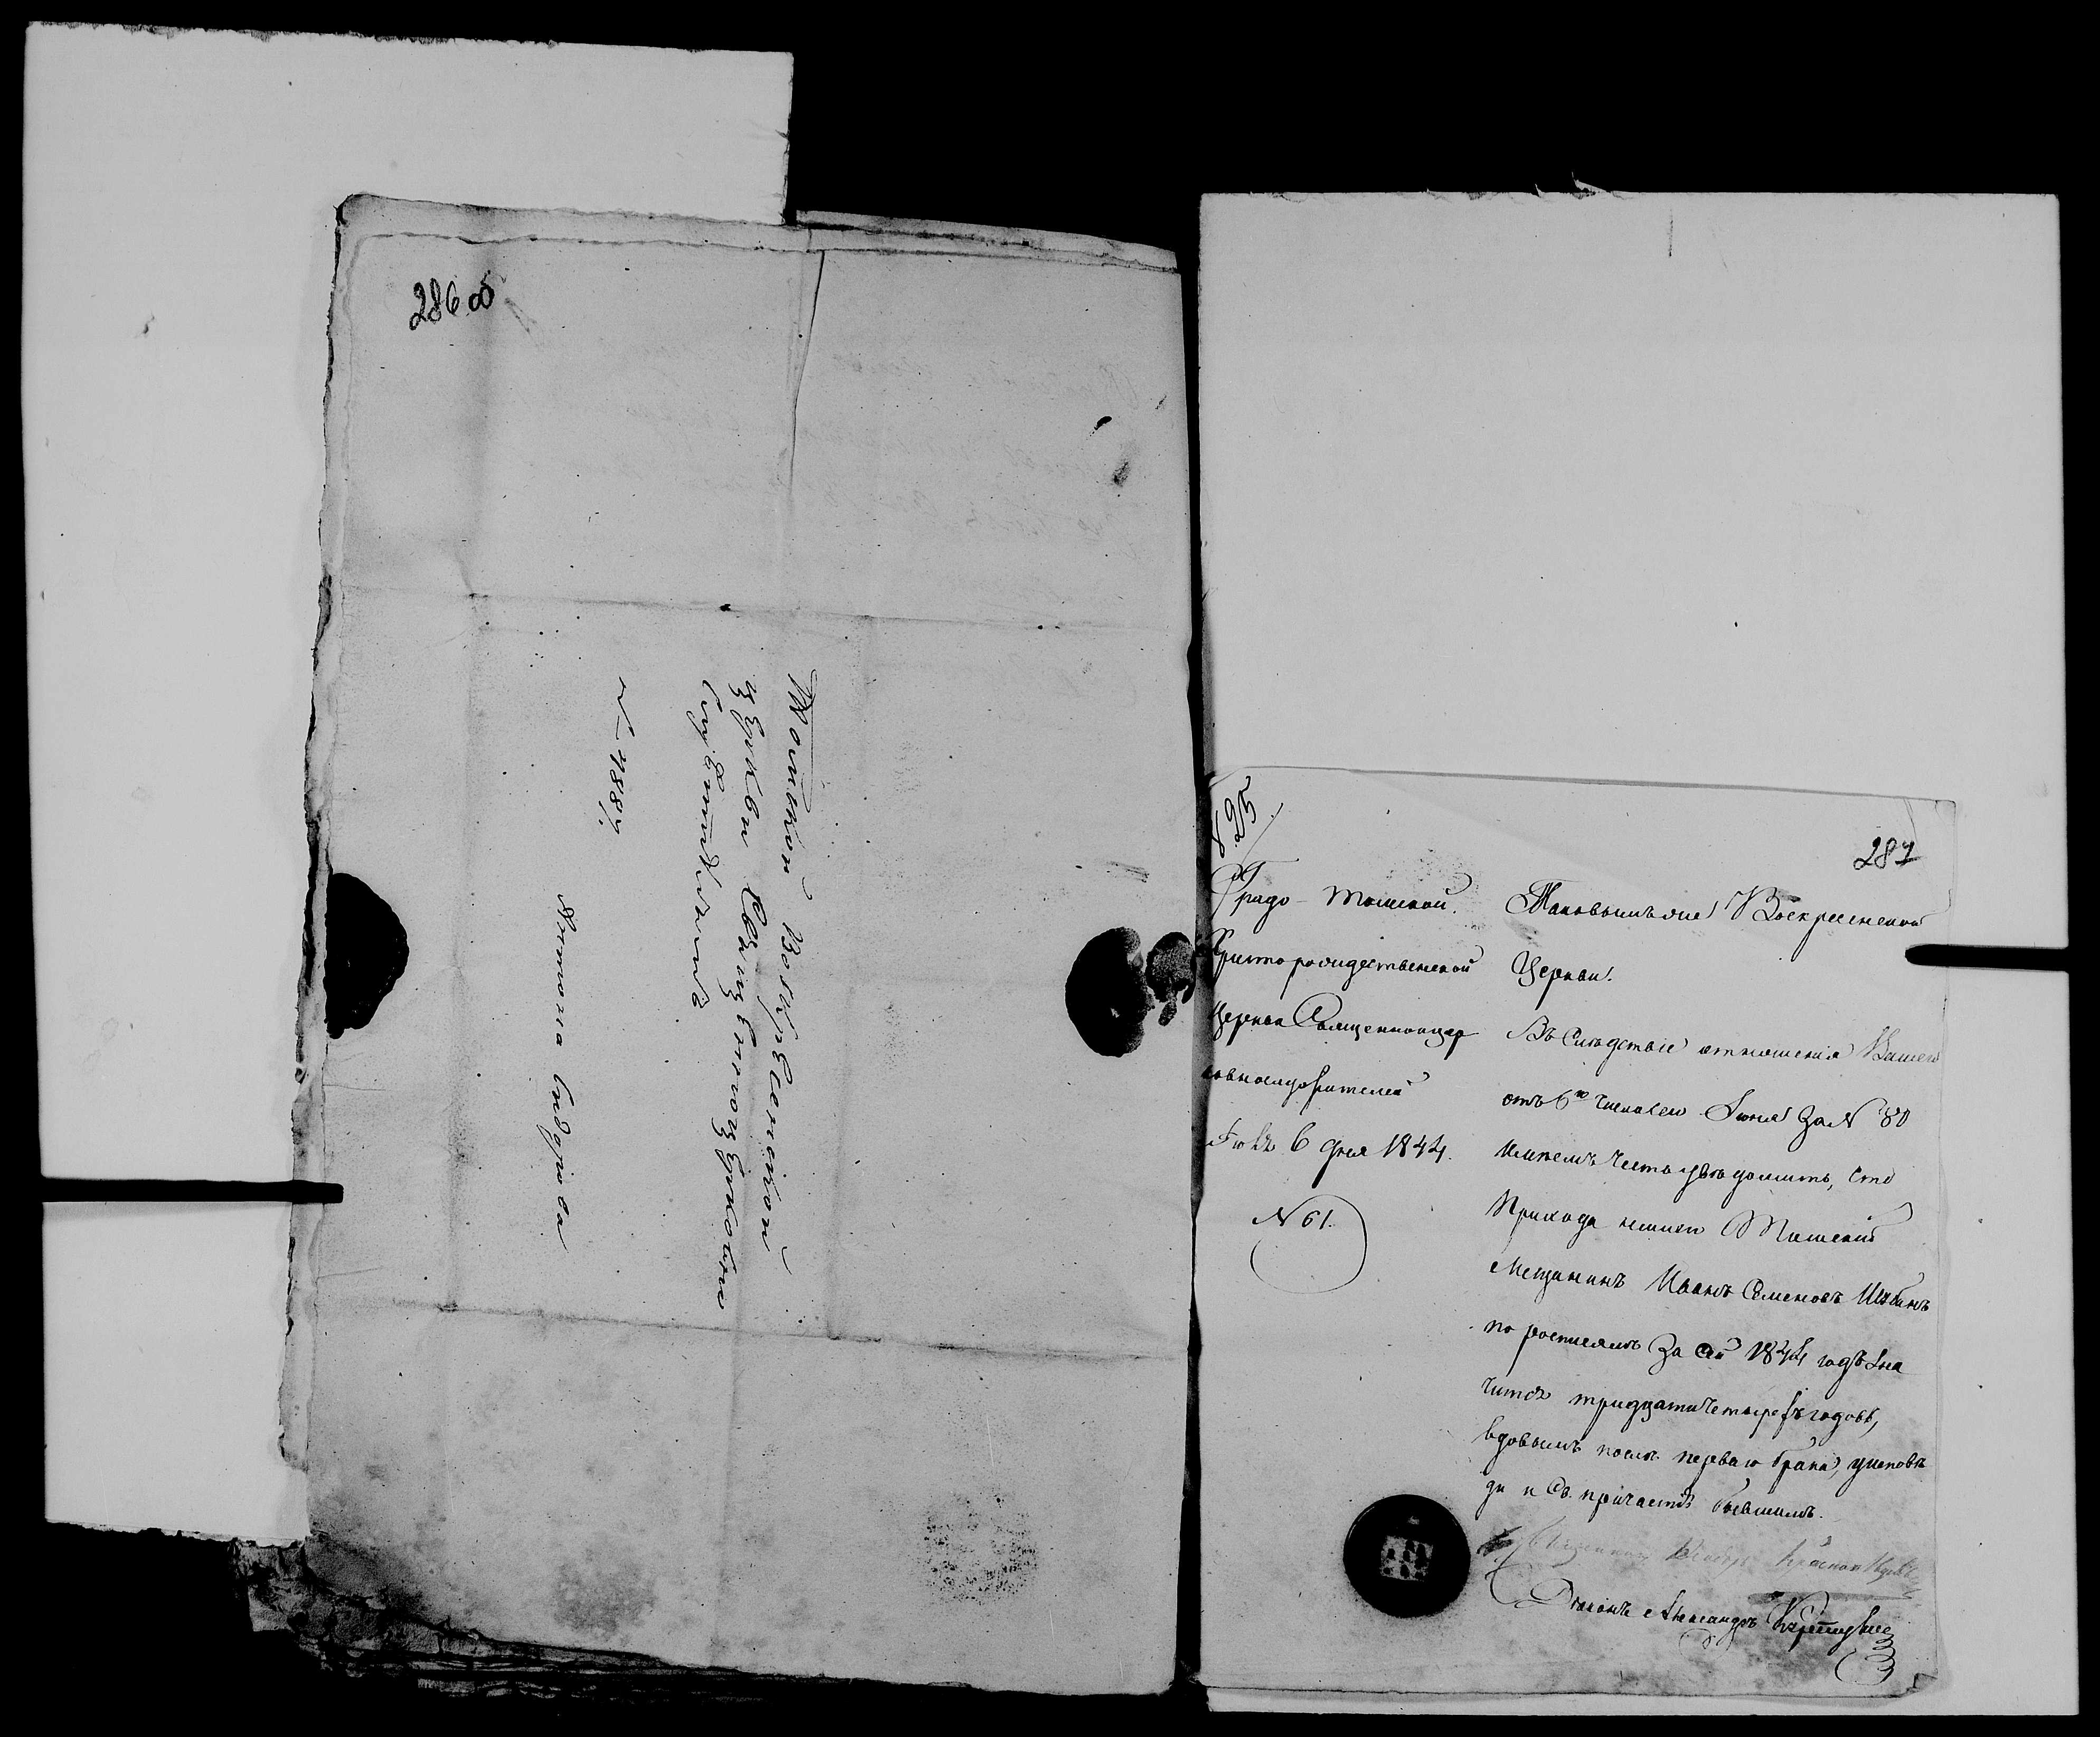 286 об
Томской Воскресенской
церкви Священноцерковно
служителямъ
№ 4884.
Антона Сидорова
287
Градо-Томской
Христорождественской
Церкви Священноцер
ковнослужителей
6 дня 1844.
№ 61.
Таковымъ же Воскресенской
Церкви.
Въ следствіе отношенія Вашего
отъ 6го числа сего Іюня за № 80
имеемъ честь уведомить, что
Прихода нашего Томскій
Мещанинъ Иванъ Семеновъ
по росписямъ за сей 1844 годъ зна
чится тридцати четырехъ годовъ,
вдовымъ после перваго брака, у испове
ди и Св. причастія бывшимъ.
Діаконъ Александръ